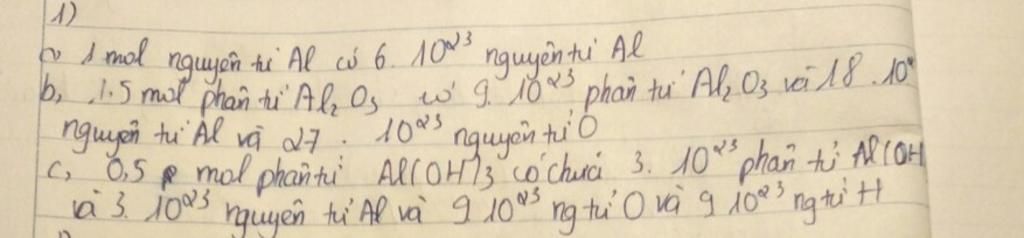 1)
a, 1 mol nguyên tử Al có 6. 10²³ nguyên tử Al
b, 1.5 mol phân tử Al₂O₃ có 9. 10²³ phân tử Al₂O₃ và 18 . 10²
nguyên tử Al và 27 . 10²³ nguyên tử O
c, 0,5 mol phân tử Al(OH)₃ có chứa 3. 10²³ phân tử Al(OH
và 3. 10²³ nguyên tử Al và 9 10²³ ng tử O và 9 10²³ ng tử H